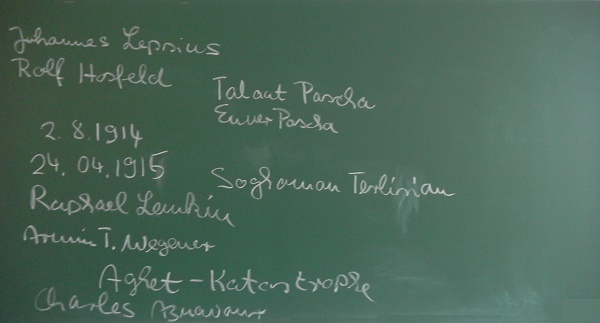 Johannes Lepsius
Rolf Hosfeld
Talaat Pascha
Enver Pascha
2.8.1914
24.04.1915
Soghoman Terlirian
Raphael Lemkin
Armin T. Wegener
Aghet - Katastrophe
Charles Aznavour